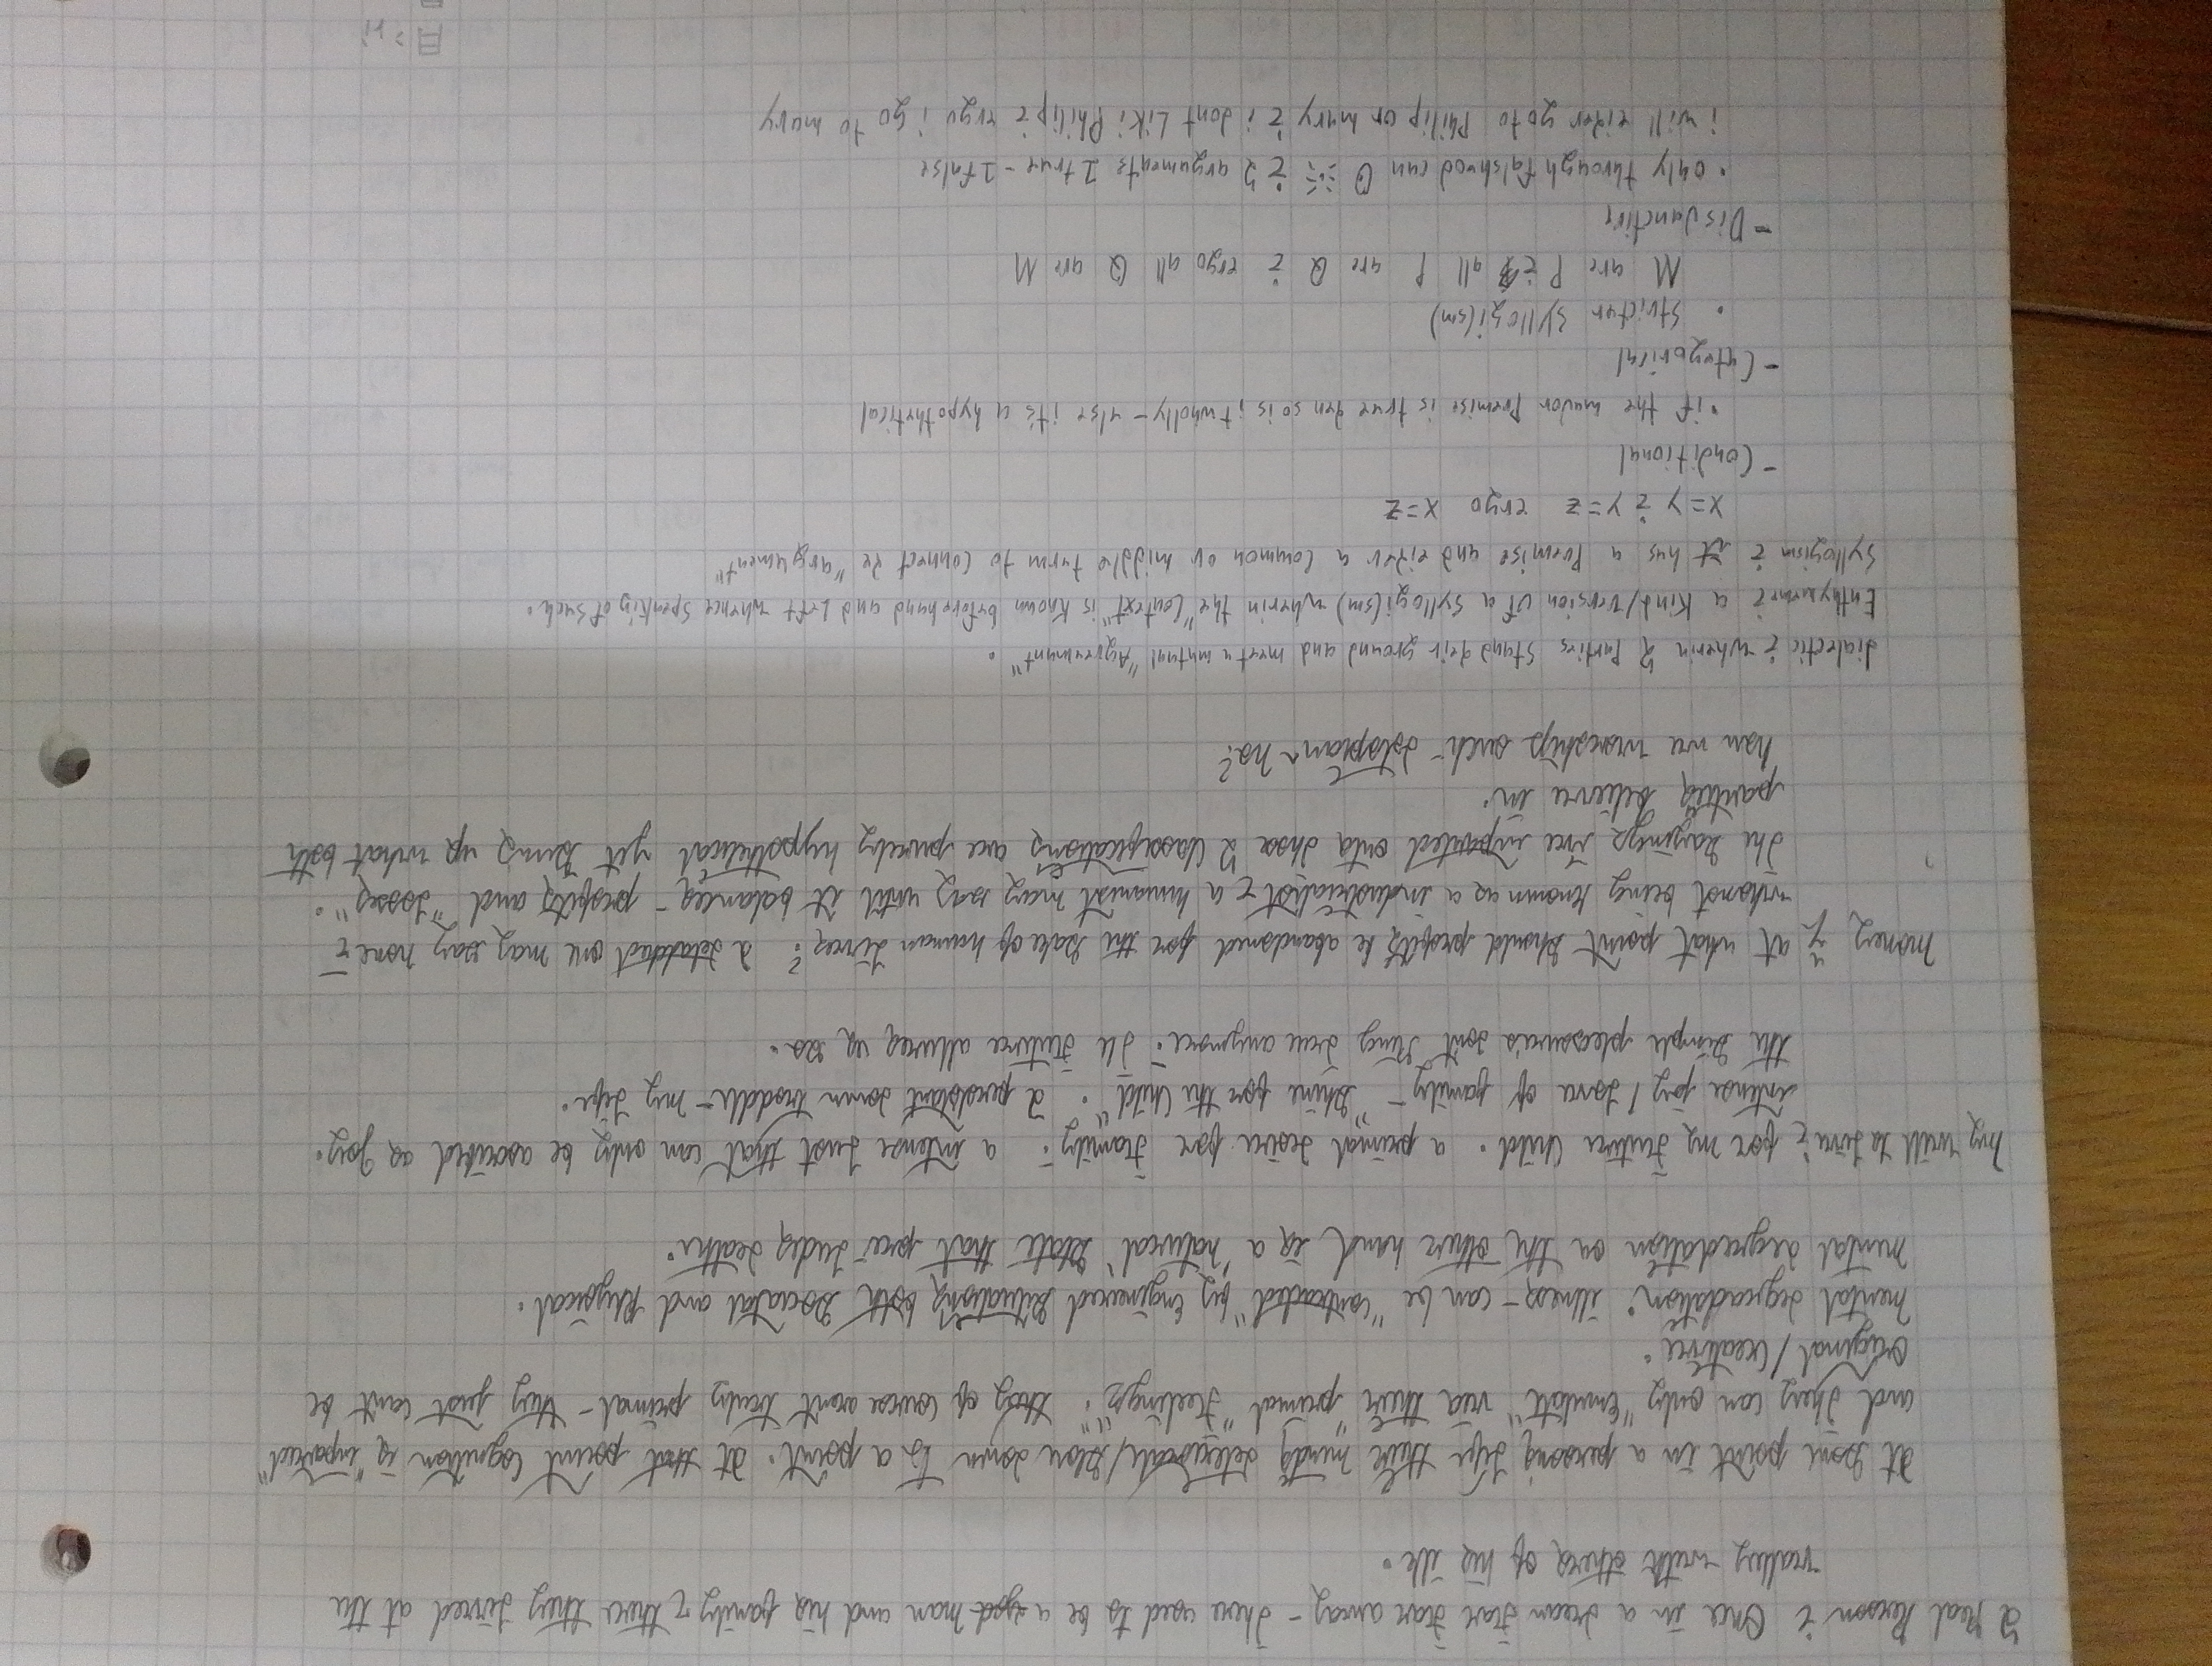 A Real Person : Once in a dream Far Far away - There used to be a man and his family : there they Lived at the
valley with others of his ilk.
At Some point in a persons Life their minds deteriorate/Slow down to a point. At that point Cognition is "inpaired"
and They can only "Emulate" via their "primal" Feelings". they of course arent truly primal - they just cant be
Original / Creative.
mental degradation: illness - can be "contracted" by Engineered Situations both Societal and Physical.
mental degradation on the other hand is a "natural" State that pre-ludes death.
my will to Live : for my Future Child. a primal desire for "Family". a intense Lust that can only be ascribed as Joy.
intense joy / Love of family - "Shine for the Child". A persistant down troddle - my Life.
the Simple pleasures dont Ring true anymore. The Future allures us so.
money : at what point should profits be abandoned for the Sake of human Lives? A detatched one may say none :
whomst being known as a industrialist : a humanist may say until it balances - profits and "Losses".
The Sayings Ive inputed onto those 2 Classifications are purely hypothetical yet Bring up what both
parties believe in.
how we worship such - dotopian no?
dialectic : wherin 2 Parties Stand deir ground and meet a mutual "Agreement".
Enthymeme : a Kind/Version of a Syllogi(sm) wherin the "Context" is Known beforehand and Left whence Speaking of such.
Syllogism : it has a Premise and eiðer a Common or middle term to Connect ðe "argument"
x=y : y=z ergo x=z
- Conditional
• if the mador Premise is true ðen so is it wholly - else its a hypothetical
- Categorical
• Stricter Syllogi(sm)
M are P : all P are Q : ergo all Q are M
- Disdunctive
• only through falshood can : 2 arguments 1 true - 1 false
i will eiðer go to Philip or mary : i dont Like Philip : ergo i go to mary